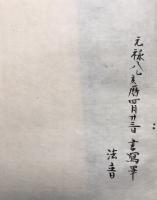 元禄八乙亥暦四月廿三日書写畢
法音